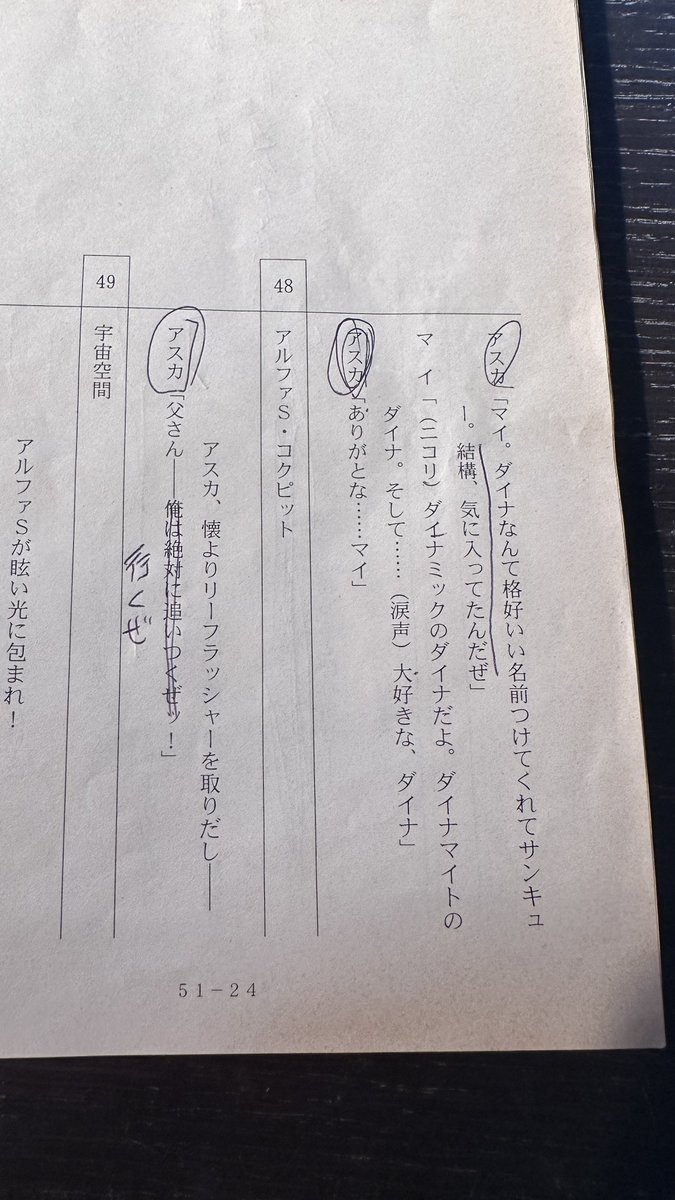 アスカ「マイ。ダイナなんて格好いい名前つけてくれてサンキュ
ー。結構、気に入ってたんだぜ」
マ イ「（ニコリ）ダイナミックのダイナだよ。ダイナマイトの
ダイナ。そして……（涙声）大好きな、ダイナ」
アスカ「ありがとな……マイ」
48
アルファS・コクピット
アスカ、懐よりリーフラッシャーを取りだし――
アスカ「父さん――俺は絶対に追いつくぜッ！」
行くぜ
49
宇宙空間
アルファSが眩い光に包まれ！
51－24